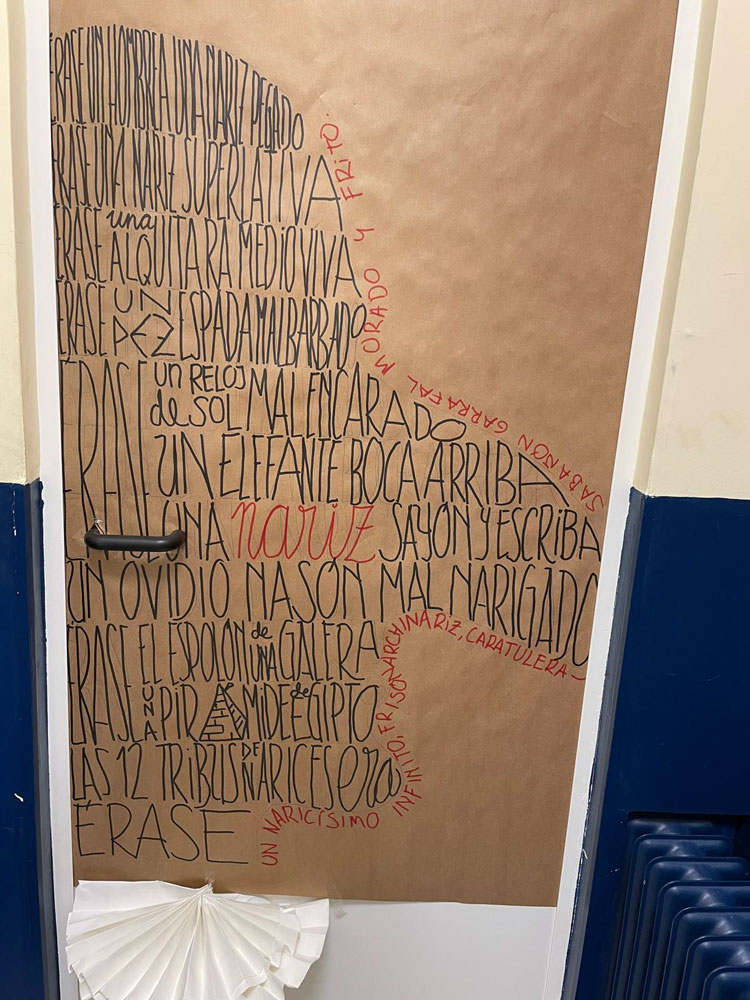 ÉRASE UN HOMBRE A UNA NARIZ PEGADO
ÉRASE UNA NARIZ SUPERLATIVA
ÉRASE una ALQUITARA MEDIO VIVA
ÉRASE UN PEZ ESPADA MAL BARBADO
ÉRASE UN RELOJ de SOL MAL ENCARADO
UN ELEFANTE BOCA ARRIBA
ÉRASE UNA nariz SAYÓN Y ESCRIBA
UN OVIDIO NASÓN MAL NARIGADO
ÉRASE EL ESPOLÓN de UNA GALERA
ÉRASE UNA PIRAMIDE de EGIPTO
LAS 12 TRIBUS DE NARICES era
ÉRASE
UN NARICÍSIMO INFINITO, FRISON ARCHINARIZ, CARATULERA -
SABAÑON GARRAFAL MORADO Y FRITO.